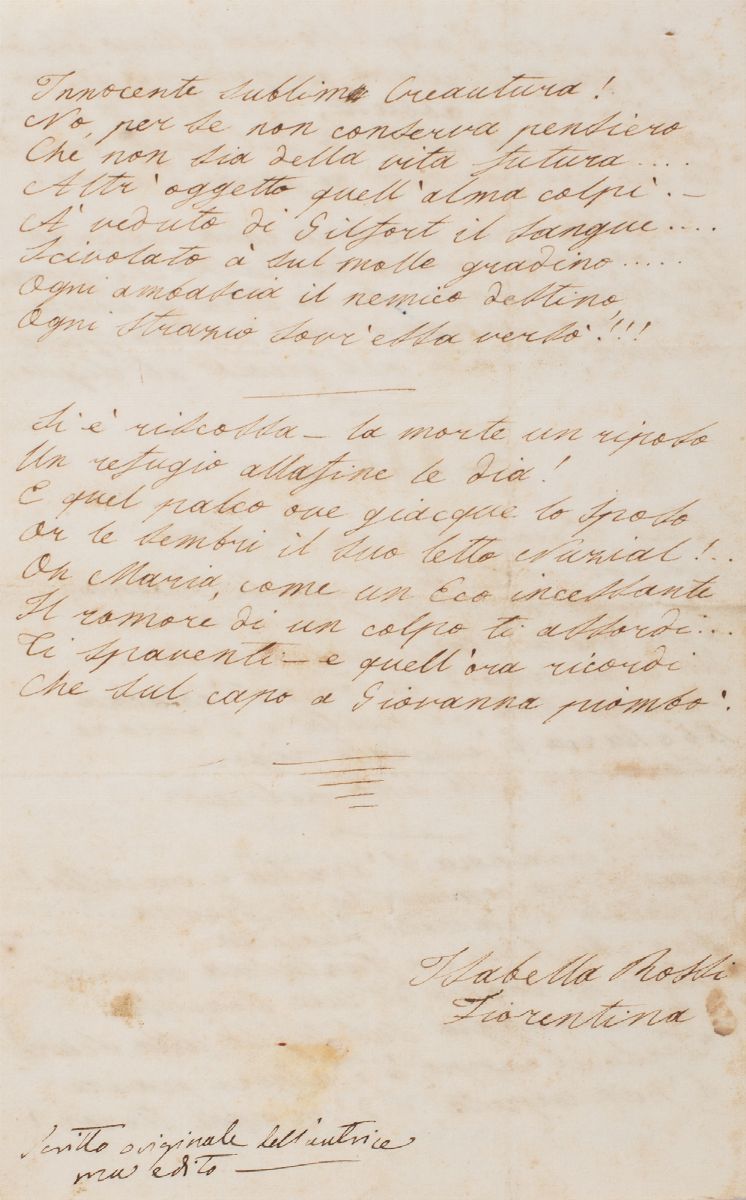 Innocente sublime Creautura!
No, per se non conserva pensiero
Che non sia della vita futura.....
Altr' oggetto quell'alma colpì. –
À veduto di Gilfort il sangue....
Scivolato à sul molle gradino.....
Ogni ambascia il nemico destino,
Ogni strazio sovr'essa versò!!!
Si è riscossa – la morte un riposo
Un refugio allafine le dia!
E quel palco ove giacque lo sposo
Or le sembri il suo letto Nuzial!..
Oh Maria, come un Eco incessante
Il romore di un colpo ti assordi...
Ti spaventi – e quell'ora ricordi
Che sul capo a Giovanna piombò.
Isabella Rossi
Fiorentina
Scritto originale dell'autrice
ma edito —